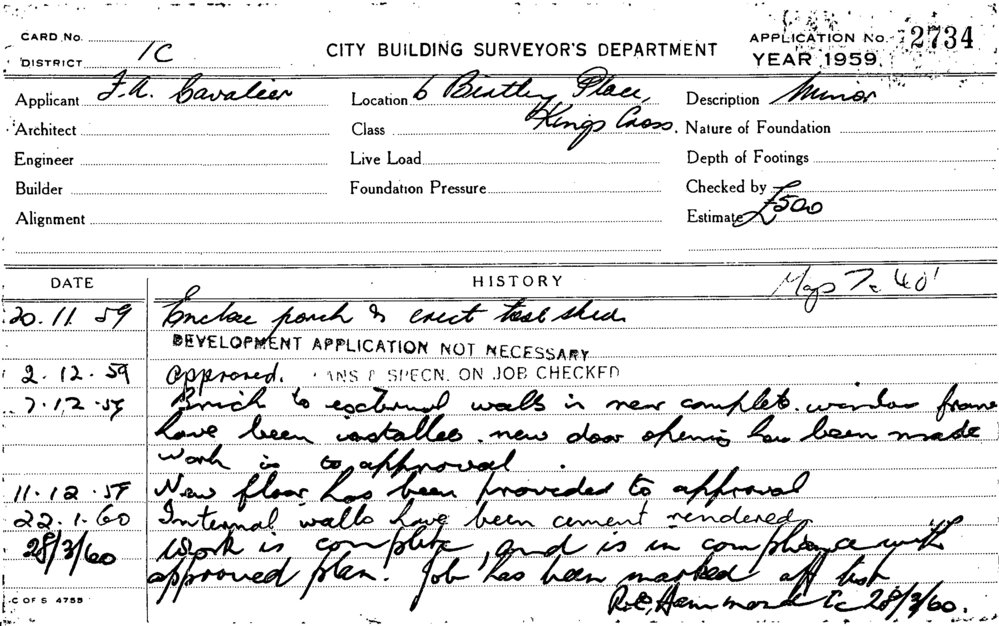 CARD No.
DISTRICT 1C
CITY BUILDING SURVEYOR'S DEPARTMENT
APPLICATION No. 2734
YEAR 1959
Applicant F.A. Cavalier
Location 6 Place,
Kings Cross.
Description Minor
Architect
Class
Nature of Foundation
Engineer
Live Load
Depth of Footings
Builder
Foundation Pressure
Checked by
Alignment
Estimate £500
DATE
HISTORY
20.11.59 Enclose porch & erect tool shed.
DEVELOPMENT APPLICATION NOT NECESSARY
2.12.59 approved. ANS & SPECN. ON JOB CHECKED
7.12.59 Brick to external walls in near complete. window frame
have been installed. new door opening has been made
work is to approval.
11.12.59 New floor has been provided to approval
22.1.60 Internal walls have been cement rendered
28/3/60 Work is complete, and is in compliance with
approved plan. Job has been marked off list
R.E. Hammond 1c 28/3/60.
C OF S 4755